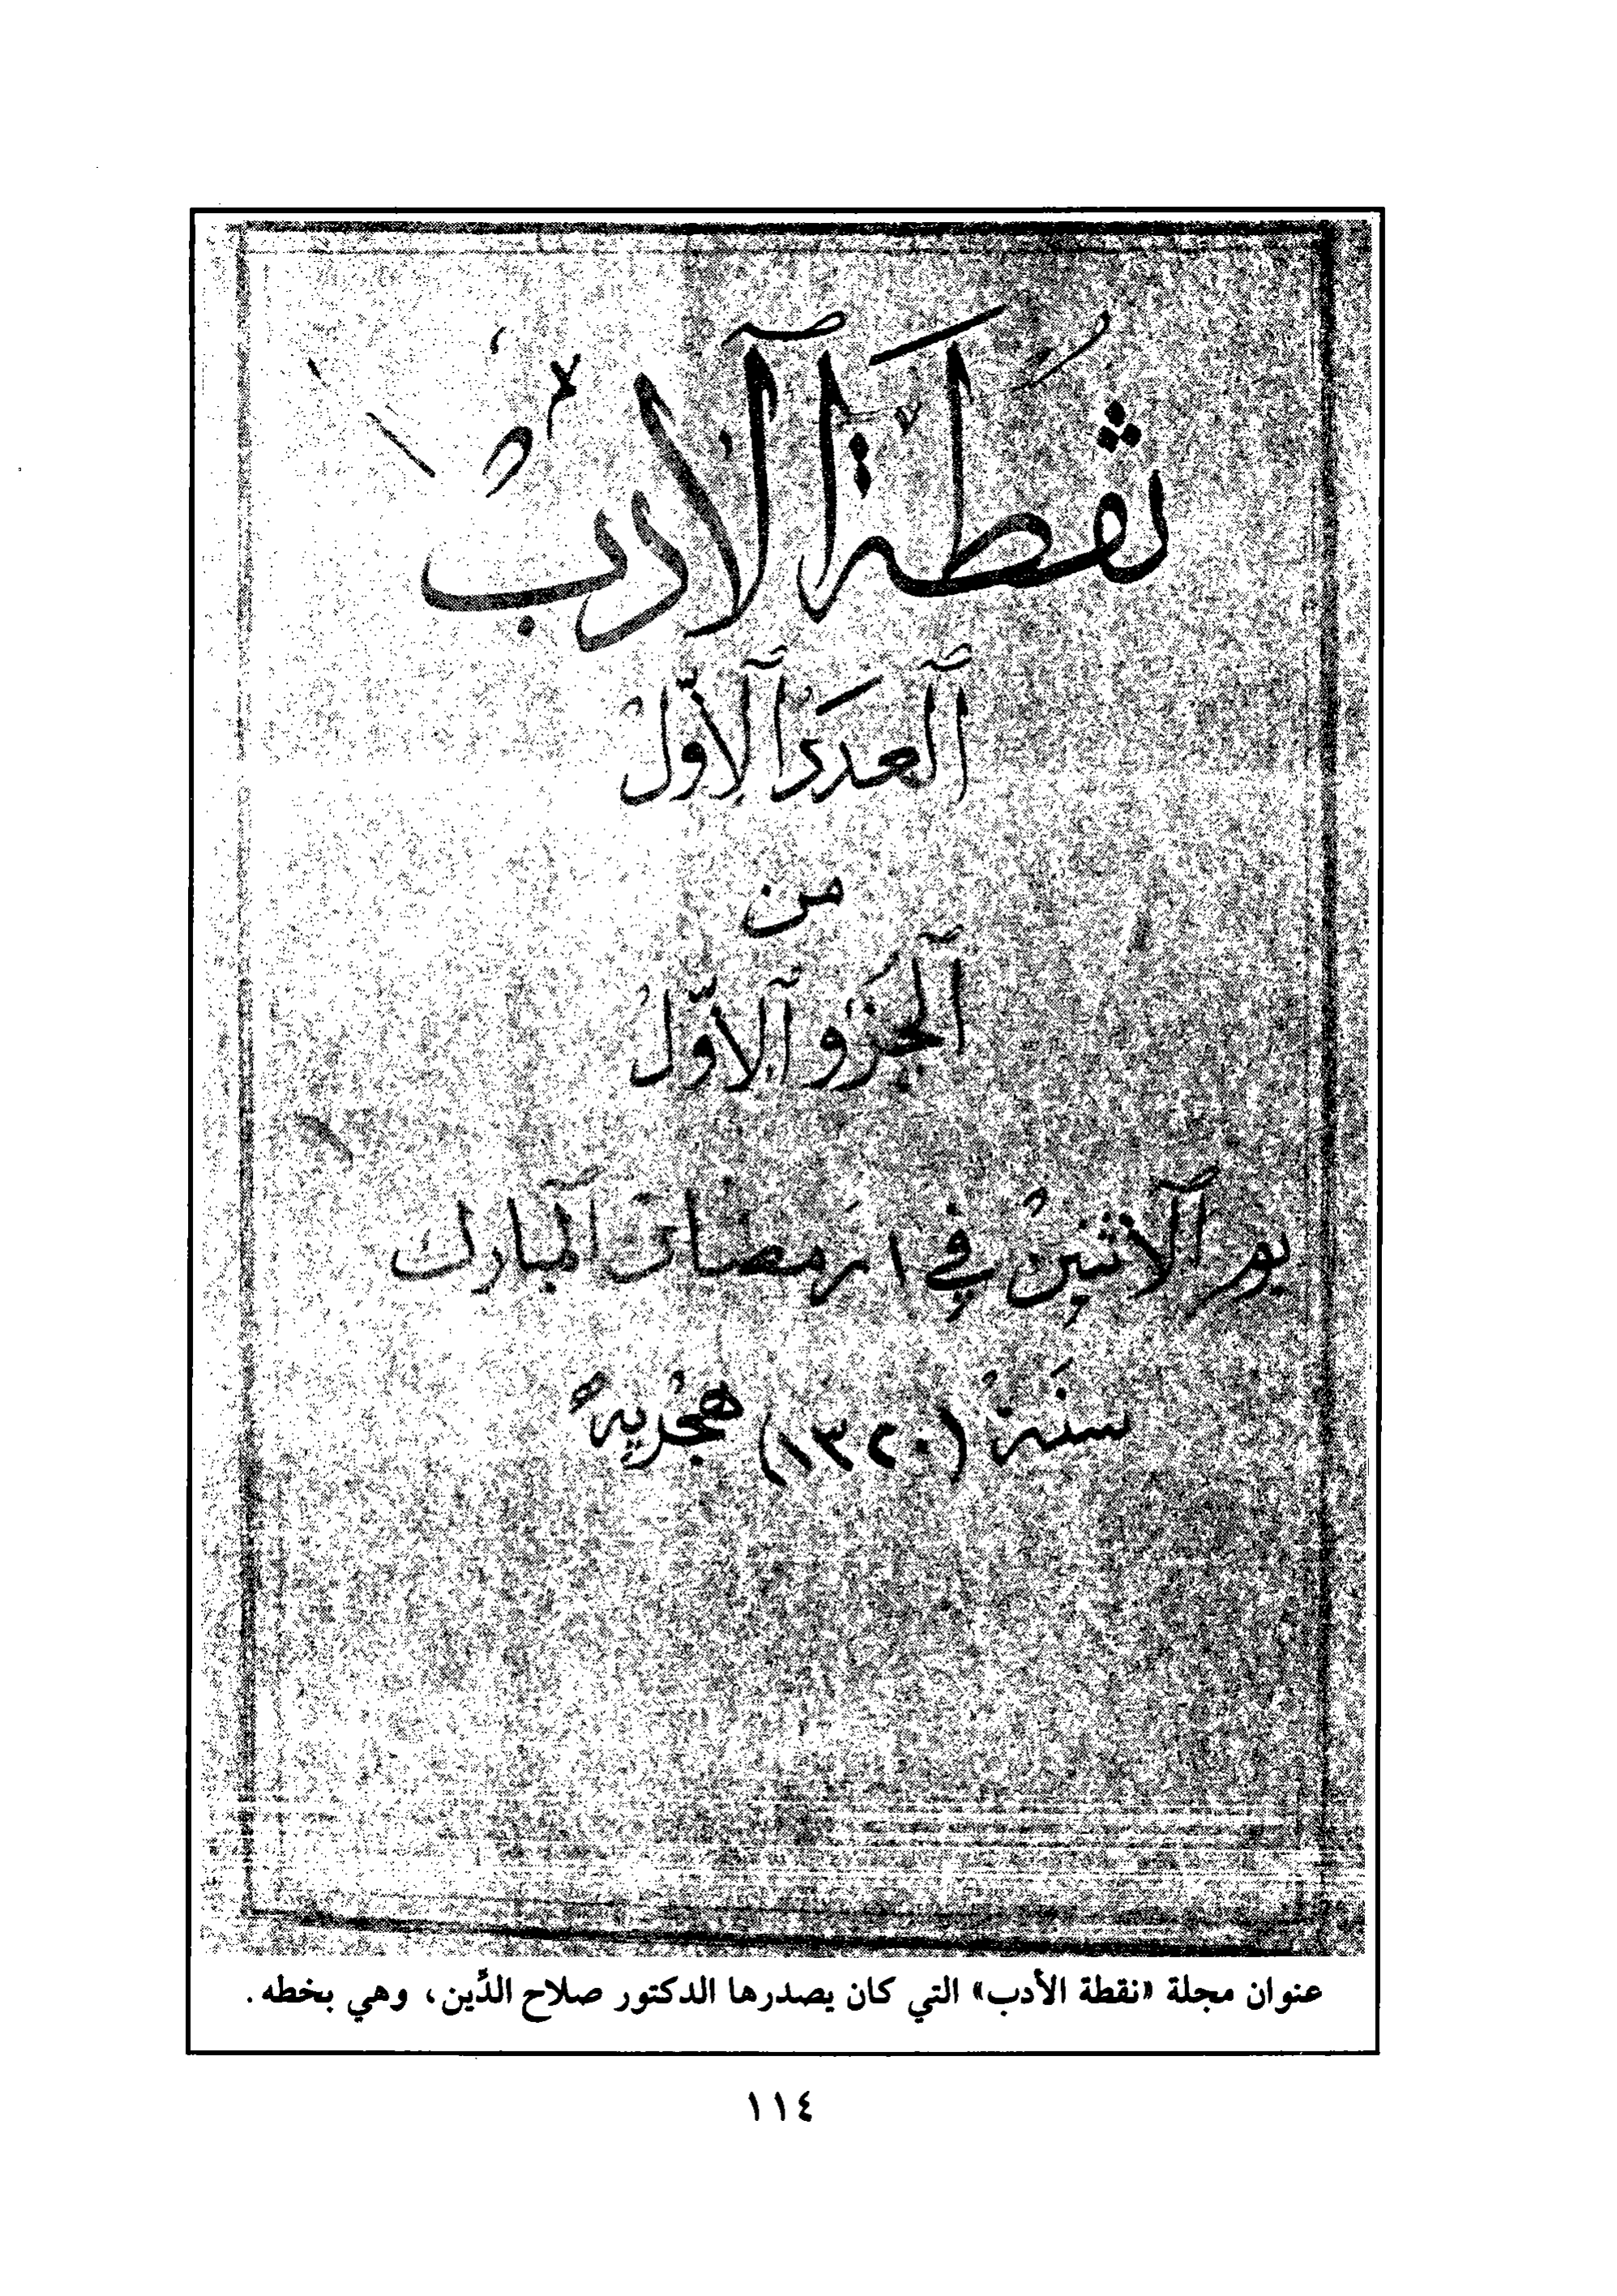 نقطة الادب
العدد الاول
من
الجزو الاول
يوم الاثنين في ١ رمضان المبارك
سنة (١٣٢٠) هجرية
عنوان مجلة «نقطة الأدب» التي كان يصدرها الدكتور صلاح الدِّين، وهي بخطه.
١١٤